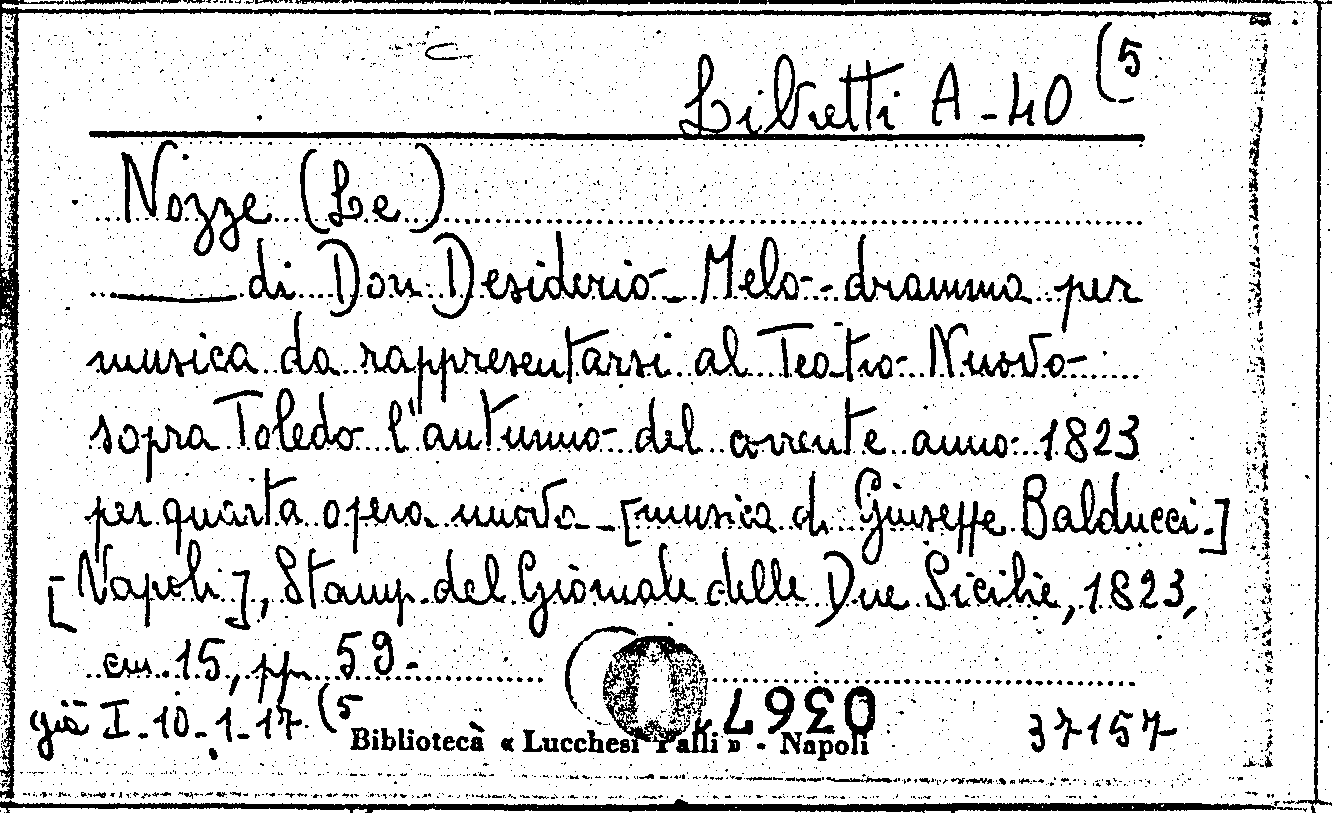 Libretti A-40 (5
Nozze (Le)
——— di Don Desiderio - Melo-dramma per
musica da rappresentarsi al Teatro Nuovo
sopra Toledo l'autunno del corrente anno 1823
per quarta opera nuova - [musica di Giuseppe Balducci.]
[Napoli], Stamp. del Giornale delle Due Sicilie, 1823,
cm. 15, pp. 59.-
già I-10-1-17 (5
03679
Biblioteca « Lucchesi Palli » - Napoli
37157